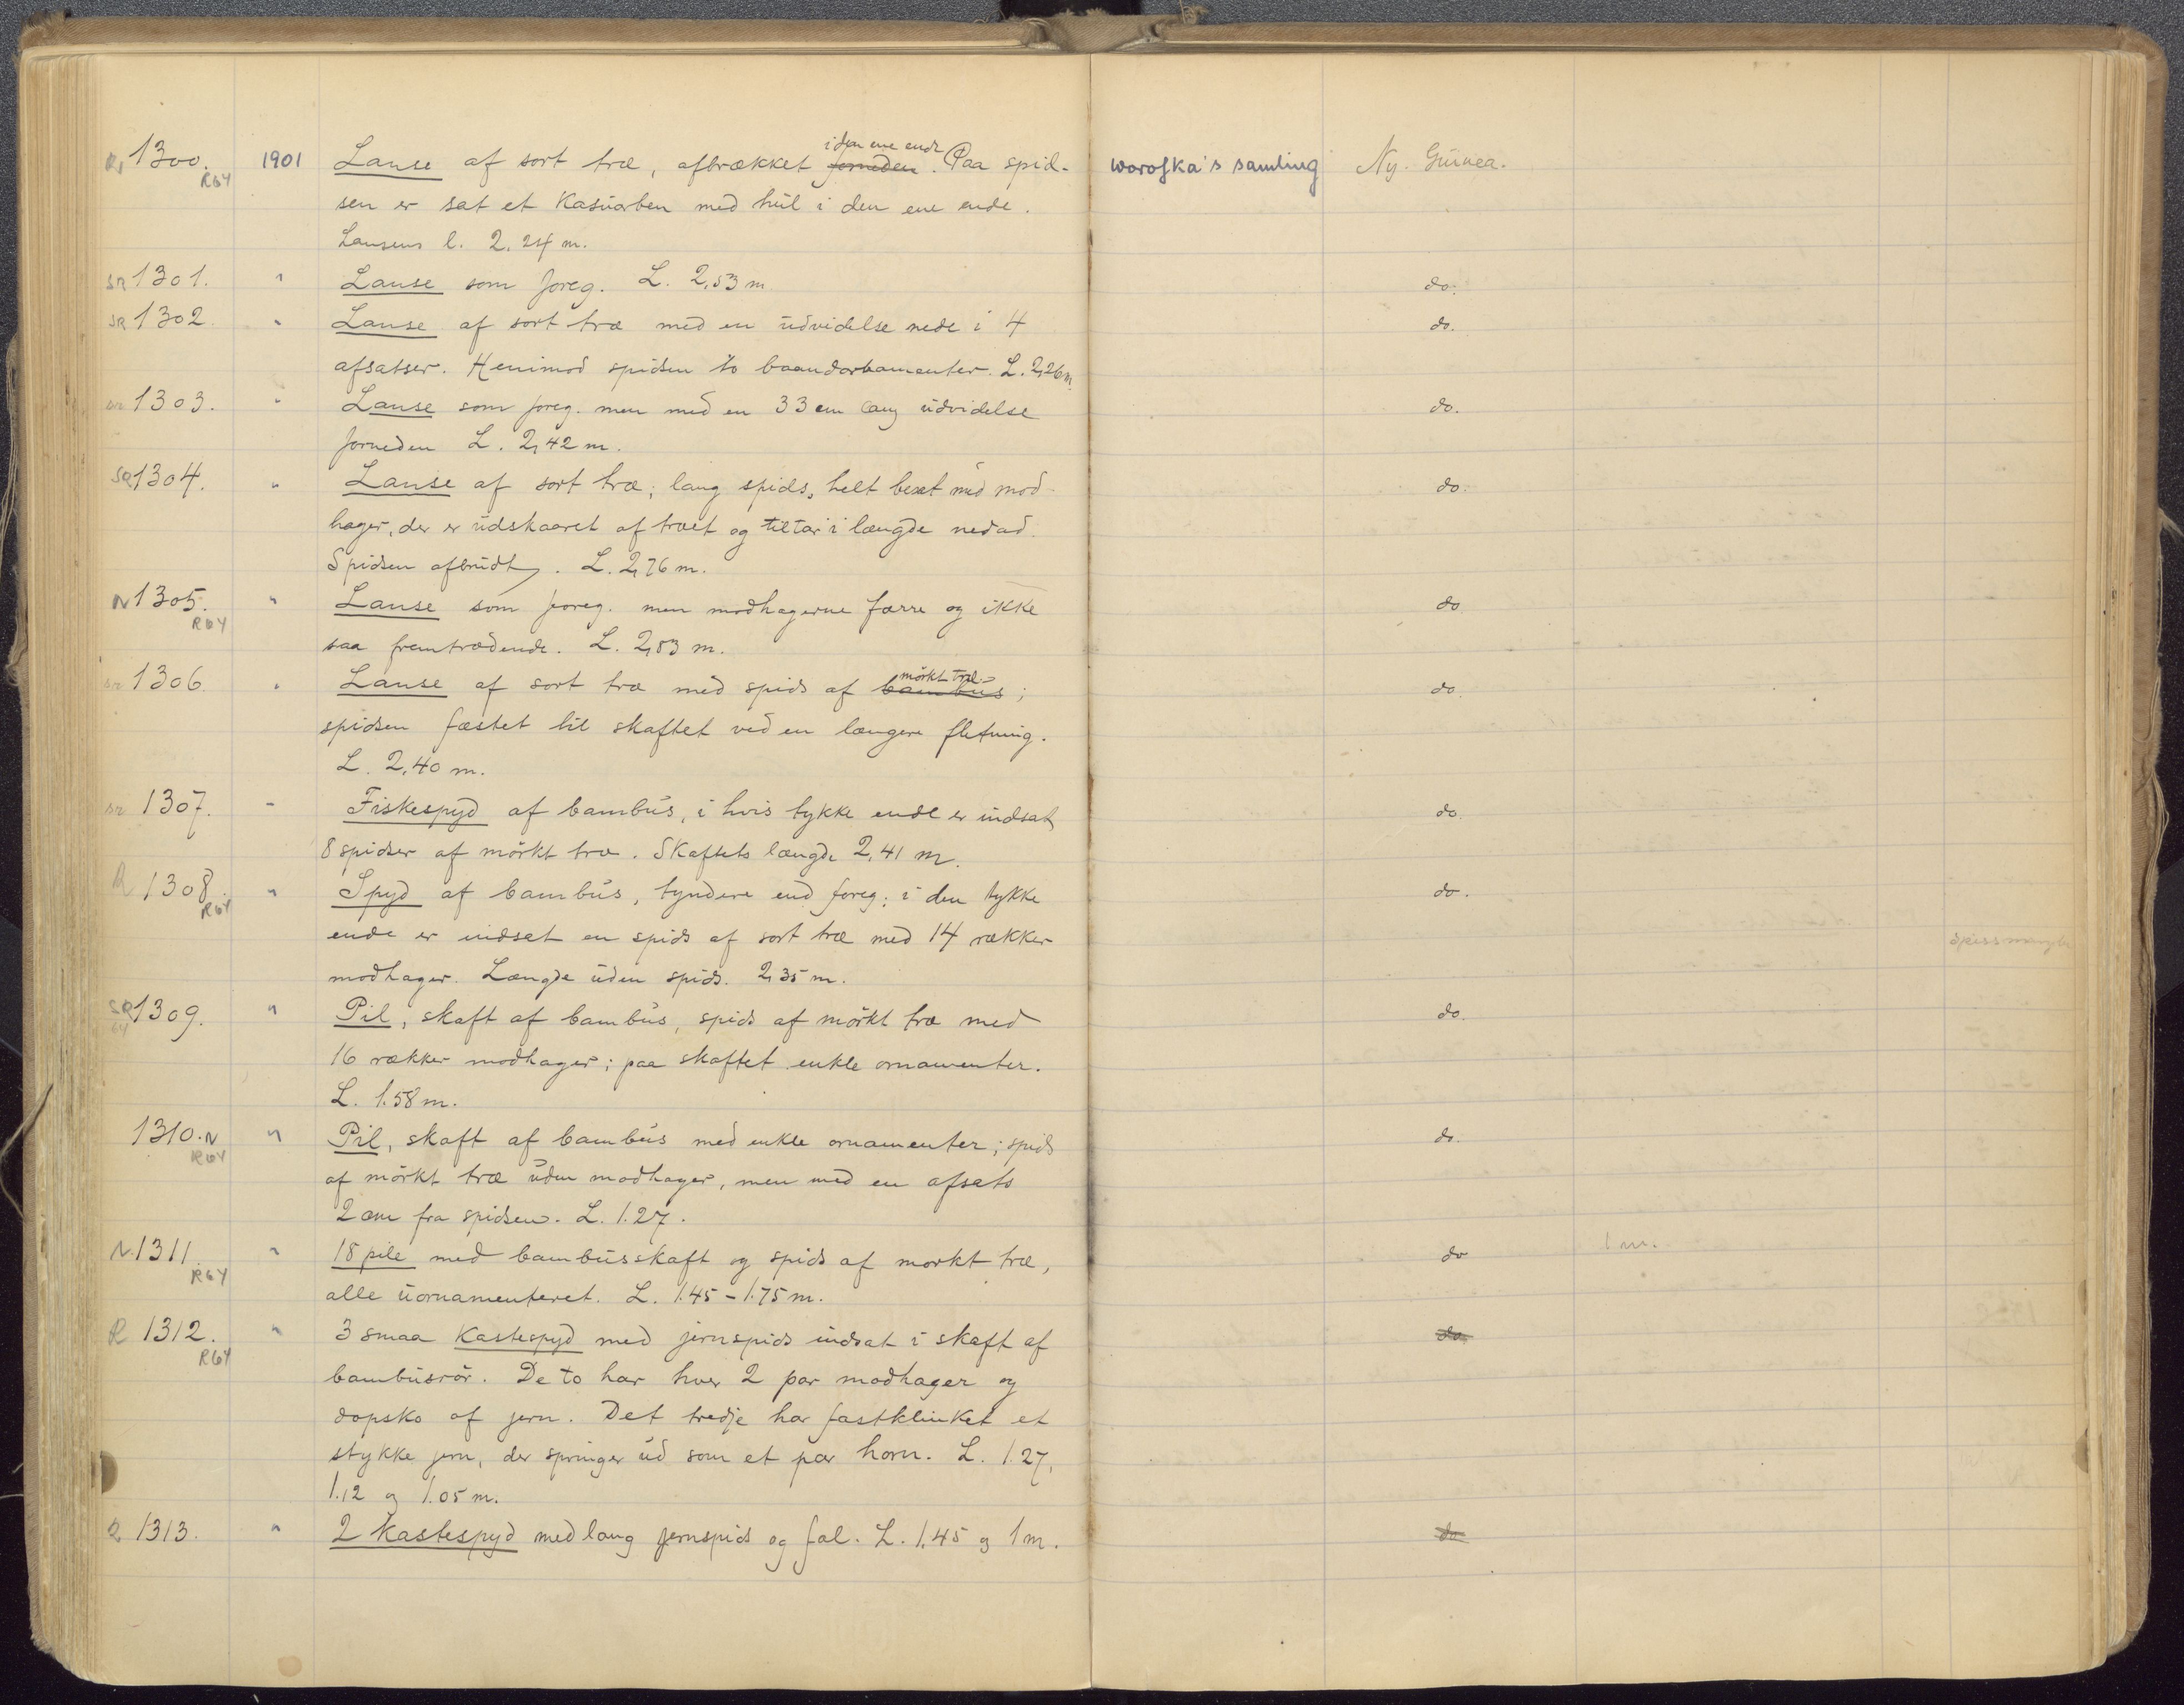 R 1300. R64 1901 Lanse af sort træ, afbrækket ~~forneden~~ i den ene ende. Paa spid- worofka's samling Ny. Guinea.
sen er sat et Kasuarben med hul i den ene ende.
Lansens l. 2.24 m.
SR 1301. " Lanse som foreg. L. 2,53 m. do.
SR 1302. " Lanse af sort træ med en udvidelse nede i 4 do.
afsatser. Henimod spidsen to baandornamenter. L. 2,26 m.
SR 1303. " Lanse som foreg. men med en 33 cm lang udvidelse do.
forneden L. 2,42 m.
SR 1304. " Lanse af sort træ; lang spids, helt besat med mod- do.
hager, der er udskaaret af træet og tiltar i længde nedad.
Spidsen afbrudt. L. 2,76 m.
N 1305. R64 " Lanse som foreg. men modhagerne færre og ikke do.
saa fremtrædende. L. 2,83 m.
SR 1306. " Lanse af sort træ med spids af ~~bambus~~ mörkt træ; do.
spidsen fæstet til skaftet ved en længere fletning.
L. 2.40 m.
SR 1307. " Fiskespyd af bambus, i hvis tykke ende er indsat do.
8 spidser af mörkt træ. Skaftets længde 2,41 m.
R 1308. R64 " Spyd af bambus, tyndere end foreg.; i den tykke do.
ende er indsat en spids af sort træ med 14 rækker spiss mangler
modhager. Længde uden spids. 2,35 m.
SR 64 1309. " Pil, skaft af bambus, spids af mörkt træ med do.
16 rækker modhager; paa skaftet enkle ornamenter.
L. 1.58 m.
1310. N R64 " Pil, skaft af bambus med enkle ornamenter; spids do.
af mörkt træ uden modhager, men med en afsats
2 cm fra spidsen. L. 1.27.
N. 1311. R64 " 18 pile med bambusskaft og spids af morkt træ, do 1 m.
alle uornamenteret. L. 1.45 - 1.75 m.
R 1312. R64 " 3 smaa Kastespyd med jernspids indsat i skaft af ~~do.~~
bambusrör. De to har hver 2 par modhager og
dopsko af jern. Det tredje har fastklinket et
stykke jern, der springer ud som et par horn. L. 1.27,
1.12 og 1.05 m.
R 1313. " 2 Kastespyd med lang jernspids og fal. L. 1.45 og 1 m. ~~do~~